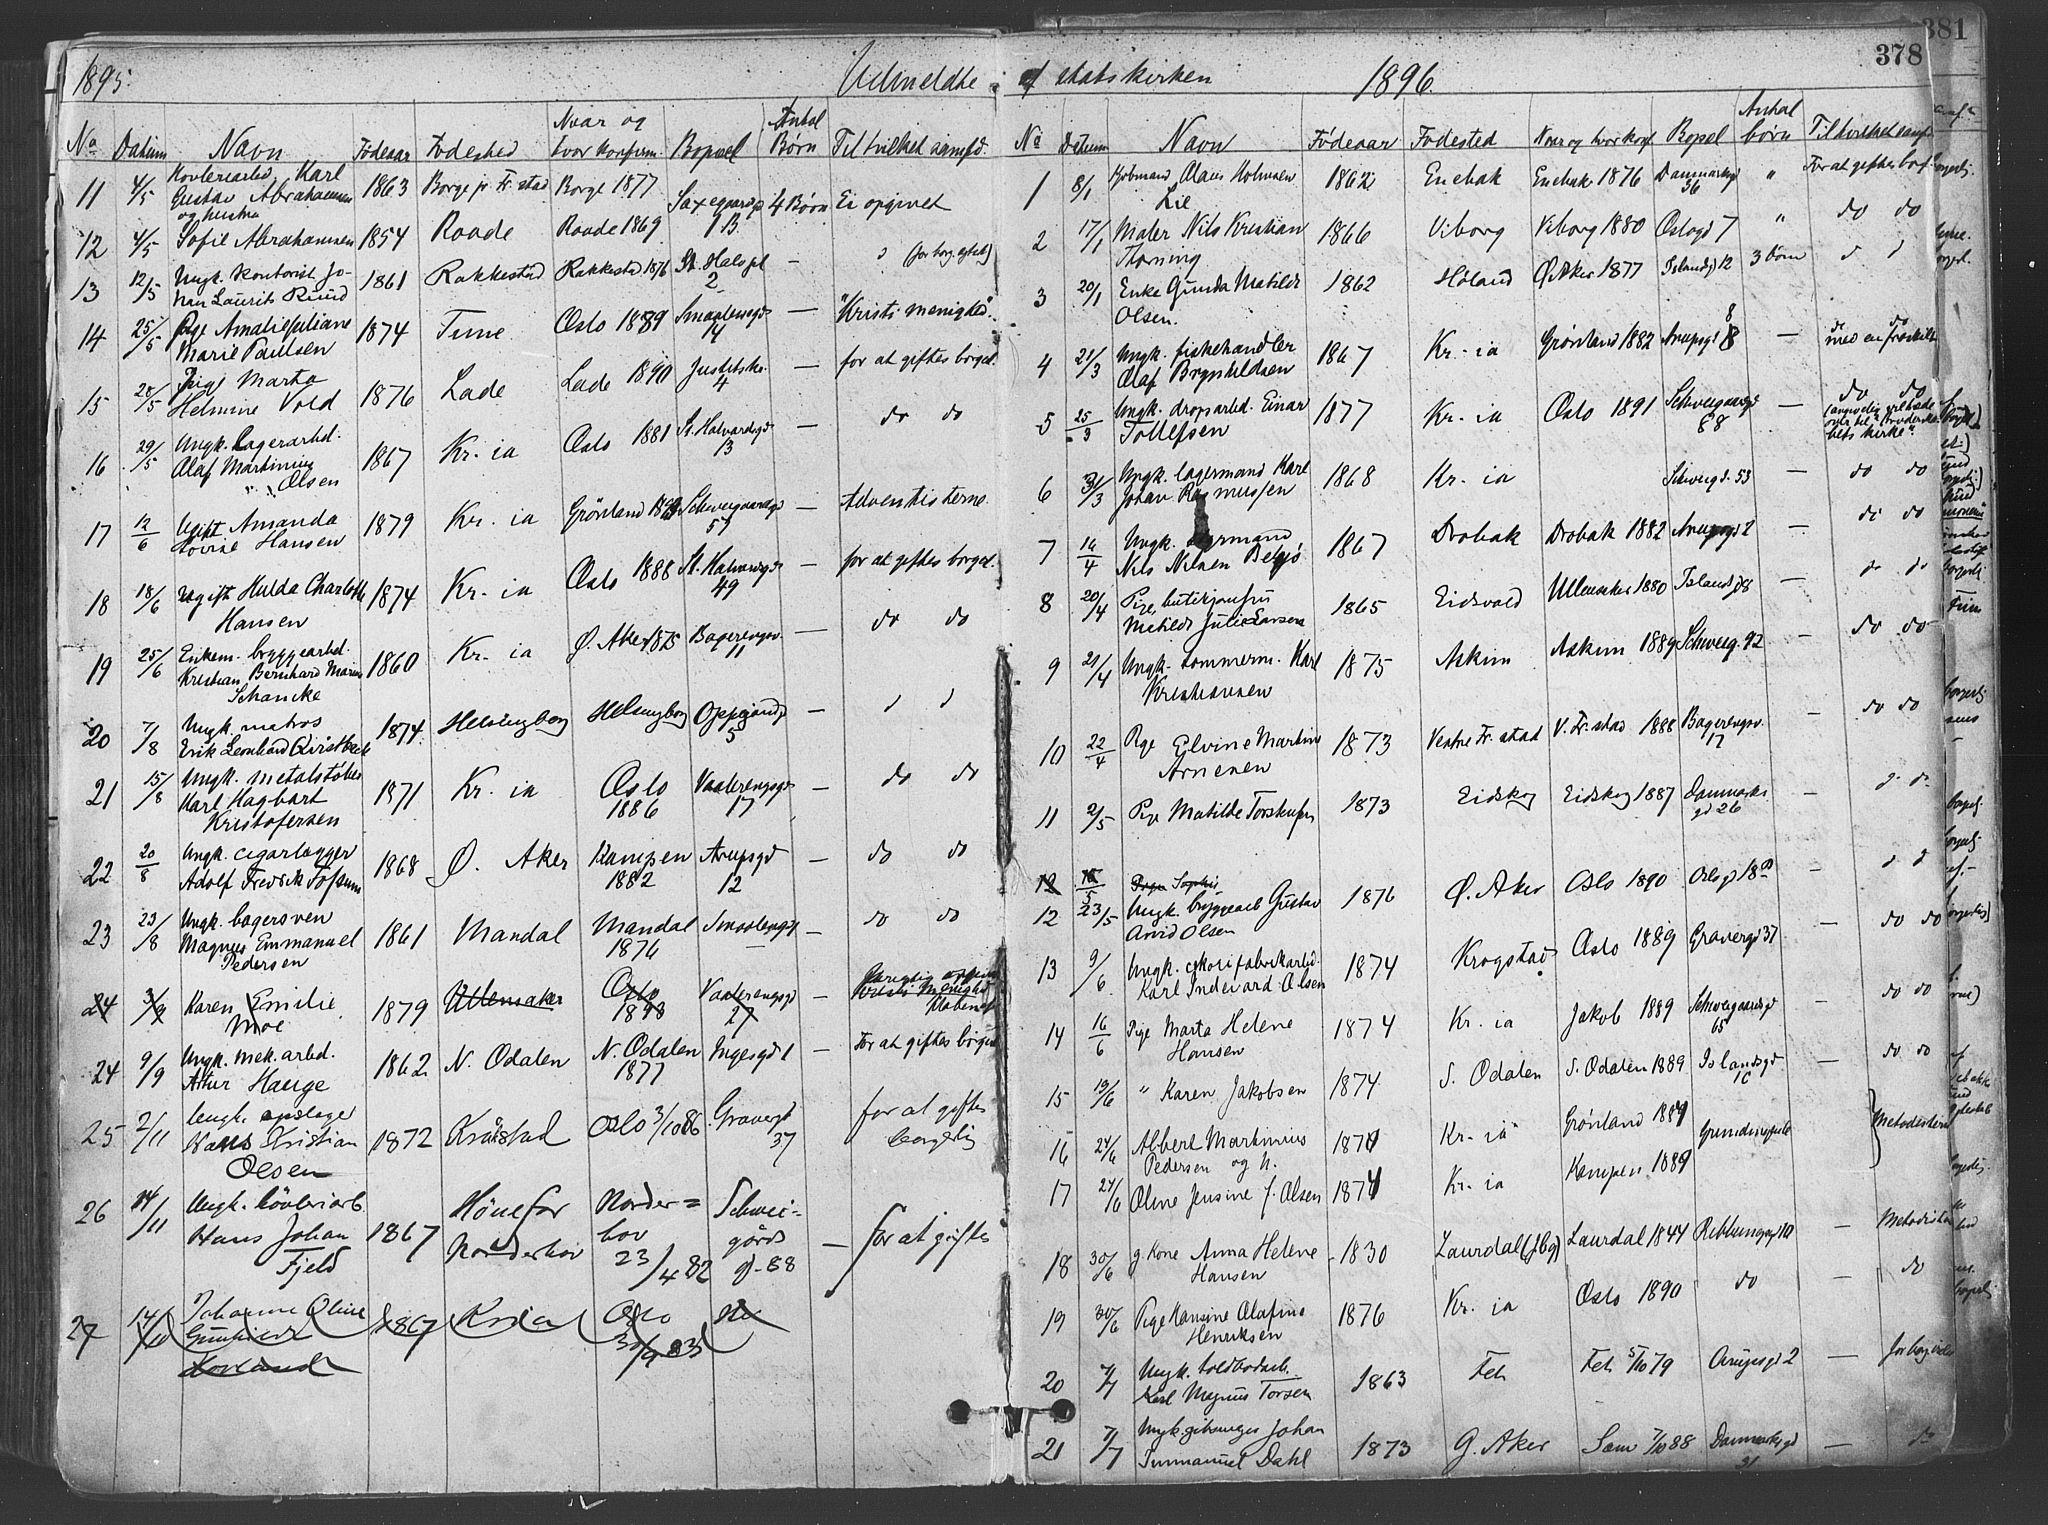 381
378
1895. Udmeldte
No Datum Navn Fødeaar Fødested Naar og hvor konfirm. Bopæl Antal Børn Til hvilket samfd.
11 4/5 Høvleriarbd. Karl Gustav Abrahamsen og hustru 1863 Borge pr Fr.stad Borge 1877 Saxegaardsg 1 B. 4 Børn Ei opgivet
12 4/5 Sofie Abrahamsen 1854 Raade Raade 1869
13 12/5 Ungk. kontorist Jo- han Laurits Ruud 1861 Rakkestad Rakkestad 1876 St. Hals pl 2 —
14 25/5 Pige Amalie Juliane Marie Paulsen 1874 Tune Oslo 1889 Smaalensgd 14 — "Kristi menighed".
15 28/5 Pige Marta Helmine Vold 1876 Lade Lade 1890 Justitsks. 4 — for at giftes borgel.
16 29/5 Ungk. Lagerarbd. Olaf Martinius Olsen 1867 Kr. ia Oslo 1881 St. Halvardsgd 13 — do do
17 12/6 Ugift Amanda Lovise Hansen 1879 Kr. ia Grønland Schweigaardsgd 57 — Adventisterne
18 18/6 Ugift Hulda Charlotte Hansen 1874 Kr. ia Oslo 1888 St. Halvardsgd 49 — for at giftes borgel.
19 25/6 Enkem. byggearbd. Kristian Bernhard Marius Schancke 1860 Kr. ia Ø. Aker 1875 Bagerengsv. 11 — do do
20 7/8 Ungk. matros Erik Leonhard Qvistbeck 1874. Helsingborg Helsingborg Oppejordsg 5 — d d
21 15/8 Ungk. metalstøber Karl Hagbart Kristofersen 1871 Kr. ia Oslo 1886 Vaalerengsgd 17 — do do
22 20/8 Ungk. cigarlægger Adolf Fredrik Tofsrum 1868 Ø. Aker Kampen 1882 Arupsgd 12 — do do
23 23/8 Ungk. bagersven Magnus Emmanuel Pedersen 1861 Mandal Mandal 1876 Smaalensgd — do do
24 3/9 Karen Emilie Moe 1879 Ullensaker Oslo 1893 Vaalerengsgd 27 —
24 9/9 Ungk. mek. arbd. Artur Hauge 1862 N. Odalen N. Odalen 1877 Ingesgd 1 — For at giftes borgel
25 2/11 Ungk. anslager Hans Kristian Olsen 1872 Kråkstad Oslo 3/10 86. Gravergd 37 for at giftes borgerlig
26 14/11 Ungk. høvleriarb. Hans Johan Fjeld 1867 Hønefos Norderhov Norder= hov 23/4 82 Schwei= gårds g. 88 — for at giftes
27 14/11 Johanne Oline Gunhilde 1867 Kr.ia Oslo 30/9 83
af statskirken 1896.
No Datum Navn Fødeaar Fødested Naar og hvor konf. Bopæl Antal børn Til hvilket samf.
1 8/1 Kjøbmand Olaus Holmsen Lie 1862 Enebak Enebak 1876 Danmarksgd 36 " For at giftes borg.
2 17/1 Maler Nils Kristian Thoning 1866 Viborg Viborg 1880 Oslogd 7 " do do
3 20/1 Enke Gunda Matilde Olsen. 1862 Høland Ø. Aker 1877 Islandsgd 12 3 børn d d
4 21/3 Ungk. fiskehandler Olaf Brynildsen 1867 Kr.-ia Grønland 1882 Arupsgd 8 — do do med en fraskilt
5 25/3 Ungk. dropsarbd. Einar Tollefsen 1877 Kr.-ia Oslo 1891 Schweigaardsgd 88 — do do
6 31/3 Ungk. lagermand Karl Johan Rasmussen 1868 Kr.-ia Schweigd. 53 — do do
7 14/4 Ungk. Nils Nilsen 1867 Drøbak Drøbak 1882 Arupsgd 2 — do do
8 20/4 Pige, butikjomfru Matilde Julie Larsen 1865 Eidsvold Ullensaker 1880 Islandsgd 8 — do do
9 21/4 Ungk. tømmerm. Karl Kristiansen 1875 Askim Askim 1889 Schweig. 92 — do do
10 22/4 Pige Elvine Martine Arnesen 1873 Vestre Fr.stad V. Fr.stad 1888 Bagerengsv. 17 — do do
11 2/5 Pige Matilde Torskelsen 1873 Eidskog Eidskog 1887 Danmarks gd 26 — d. do.
12 18/5 Pige Sophie
12 23/5 Ungk. byggearb Gustav Arvid Olsen 1876 Ø. Aker Oslo 1890 Oslogd 18 — d d
13 9/6 Ungk. cikorifabrikarbd. Karl Indevard Olsen 1874 Krogstad Oslo 1889 Gravergd 37 — do do
14 16/6 Pige Marta Helene Hansen 1874 Kr. ia Jakob 1889 Schweigaardsgd 65 — do do
15 19/6 " Karen Jakobsen 1874 S. Odalen S. Odalen 1889 Islandsgd 10 — do do
16 24/6 Albert Martinius Pedersen og h. 1874 Kr. ia Grønland 1889 Metodisterne
17 24/6 Oline Jensine f. Olsen 1874 Kr. ia Kampen 1889
18 30/6 g. Kone Anna Helene Hansen 1830 Laurdal (Jbg) Laurdal 1844 Ribbungsgd 10 — Metodisterne
19 30/6 Pige Hansine Olafine Henriksen 1876 Kr. ia Oslo 1890 do — do
20 7/7 Ungk. toldbodarb. Karl Magnus Torsen 1863 Feh Feh 5/10 79 Arupsgd 2 —
21 7/7 Ungk. gibsmager Johan Immanuel Dahl 1873 G. Aker Sam 7/10 88 Danmarksgd 31 — do